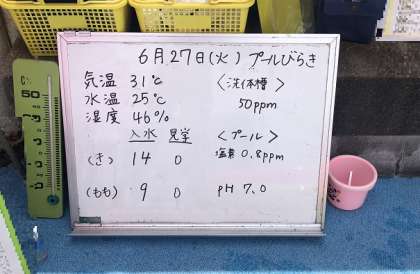 6月27日(火) プールびらき
気温 31℃
水温 25℃
湿度 46%
入水 見学
(き) 14 0
(もも) 9 0
<洗体槽>
50ppm
<プール>
塩素 0.8ppm
pH 7.0
℃
50